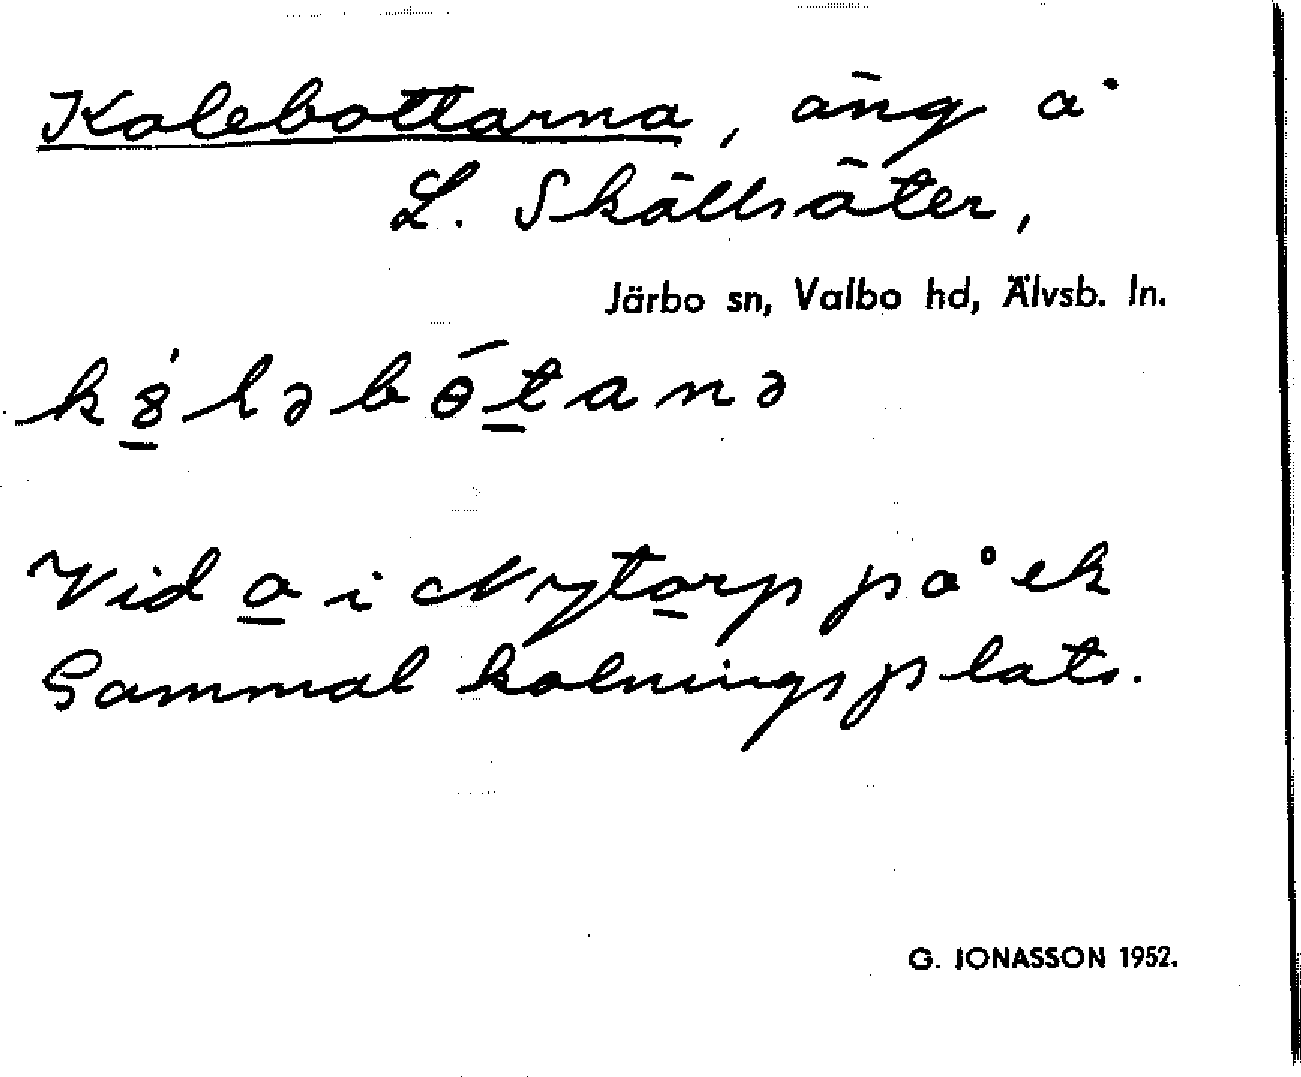 Kolebottarna, äng å
L. Skällsäter,
Järbo sn, Valbo hd, Älvsb. ln.
k8́ləbɵ̄tanə
Vid o i Nytorp på ek
Gammal kolningsplats.
G. JONASSON 1952.